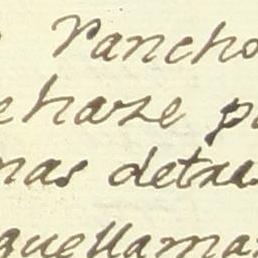 Rancho
ehaze p
mas detra
quellama